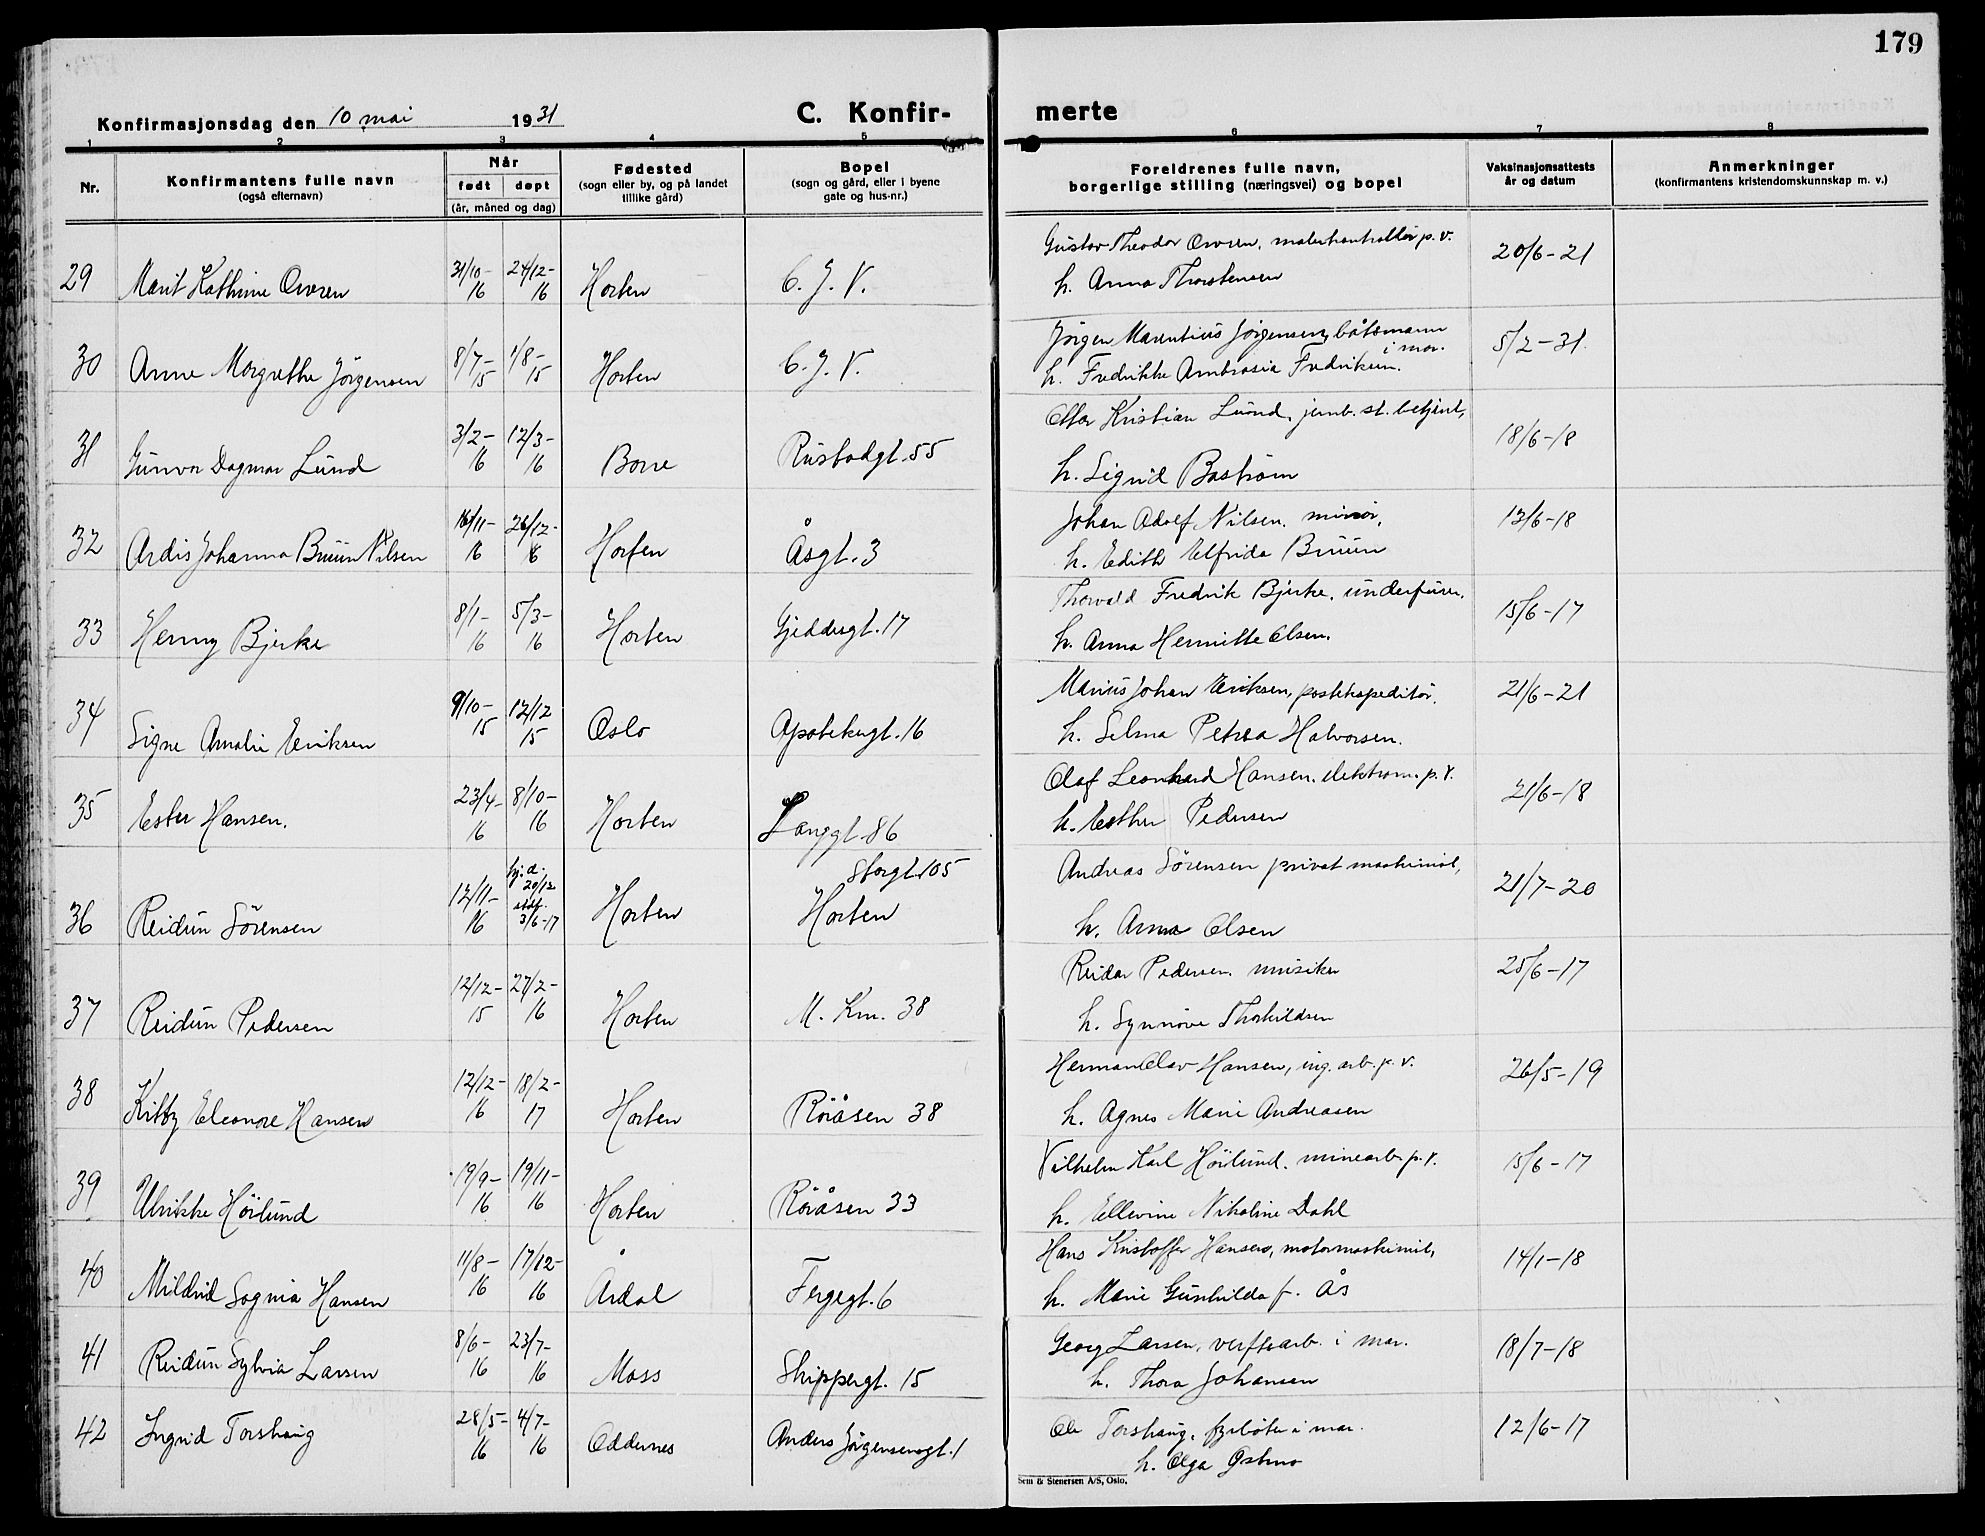 179
Konfirmasjonsdag den 10 mai 1931
C. Konfir- merte
1 2 3 4 5 6 7 8
Nr.
Konfirmantens fulle navn
(også efternavn)
Når
født døpt
(år, måned og dag)
Fødested
(sogn eller by, og på landet
tillike gård)
Bopel
(sogn og gård, eller i byene
gate og hus-nr.)
Foreldrenes fulle navn,
borgerlige stilling (næringsvei) og bopel
Vaksinasjonsattests
år og datum
Anmerkninger
(konfirmantens kristendomskunnskap m. v.)
29 Marit Kathrine 31/10-16 24/12-16 Horten C. J. V. Gustav Theodor p. v. 20/6-21
h. Anna Thorstensen
30 Anne Margrethe Jörgensen 8/7-15 1/8-15 Horten C. J. V. Jörgen Marentius Jörgensen, båtsmann i mar. 5/2-31
h. Fredrikke Ambrosia Fredriksen.
31 Gunvor Dagmar Lund 3/2-16 12/3-16 Borre Rustadgt. 55 Kristian Lund, jernb. st. betjent, 18/6-18
h. Sigrid Baström
32 Ardis Johanna Bruun Nilsen 16/11-16 26/12-16 Horten Åsgt. 3 Johan Adolf Nilsen, minör, 13/6-18
h. Edith Elfrida Bruun
33 Henny Bjerke 8/1-16 5/3-16 Horten Gjeddegt. 17 Thorvald Fredrik Bjerke, 15/6-17
h. Anna Olsen.
34 Signe Amalie Eriksen 9/10-15 12/12 15 Oslo Apotekergt. 16 Marius Johan Eriksen, postekspeditör. 21/6-21
h. Selma Petrea Halvorsen.
35 Ester Hansen. 23/4-16 8/10-16 Horten Langgt. 86 Olaf Leonhard Hansen, elektrom. p. v. 21/6-18
h. Esther Pedersen
36 Reidun Sörensen 12/11-16 hj. d. 20/12 stdf. 3/6-17 Horten Storgt. 105 Horten Andreas Sörensen privat maskinist, 21/7-20
h. Anna Olsen
37 Reidun Pedersen 12/12-15 27/2-16 Horten M. Km. 38 Reidar Pedersen, musiker 25/6-17
h. Synnöve Thorkildsen
38 Kitty Eleonore Hansen 12/12-16 18/2-17 Horten Röråsen 38 Herman Olav Hansen, ing. arb. p. v. 26/5-19
h. Agnes Marie Andreasen
39 Ulrikke Höilund 19/9-16 19/11-16 Horten Röråsen 33 Vilhelm Karl Höilund, minearb. p. v. 15/6-17
h. Ellevine Nikoline Dahl
40 Mildrid Sognia Hansen 11/8-16 17/12-16 Årdal Fergegt. 6 Hans Kristoffer Hansen, motormaskinist, 14/1-18
h. Marie Gunhilda f. Ås
41 Reidun Sylvia Larsen 8/6-16 23/7-16 Moss Skippergt. 15 Georg Larsen, verftsarb. i mar. 18/7-18
h. Thora Johansen
42 Ingrid Torshaug 28/5-16 4/7-16 Oddernes Anders Jörgensensgt. 1 Ole Torshaug, fyrböter i mar. 12/6-17
h. Olga Östmo
Sem & Stenersen A/S, Oslo.